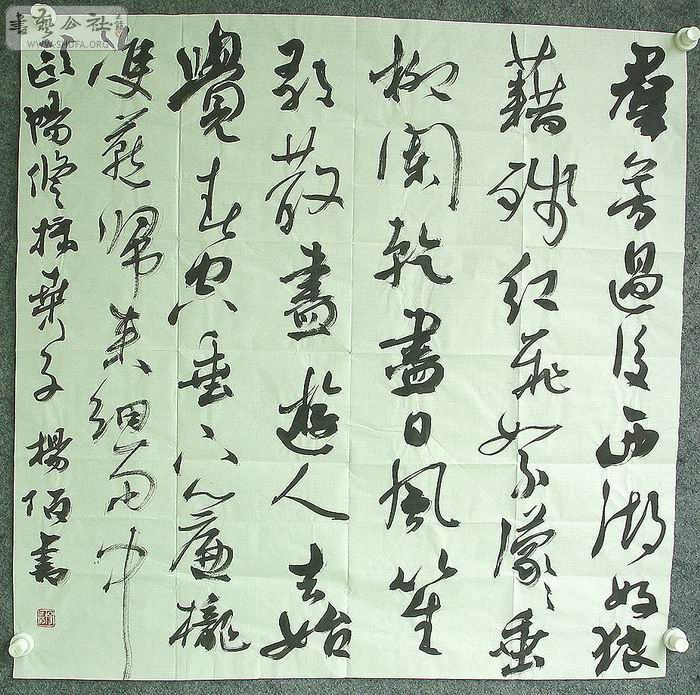 羣芳過後西湖好狼
藉殘紅飛絮濛〻垂
柳闌乾盡日風笙
歌散盡遊人去始
覺春空垂下簾櫳
雙燕歸來細雨中
歐陽修採桑子 楊書
書藝公社
WWW.SHUFA.ORG